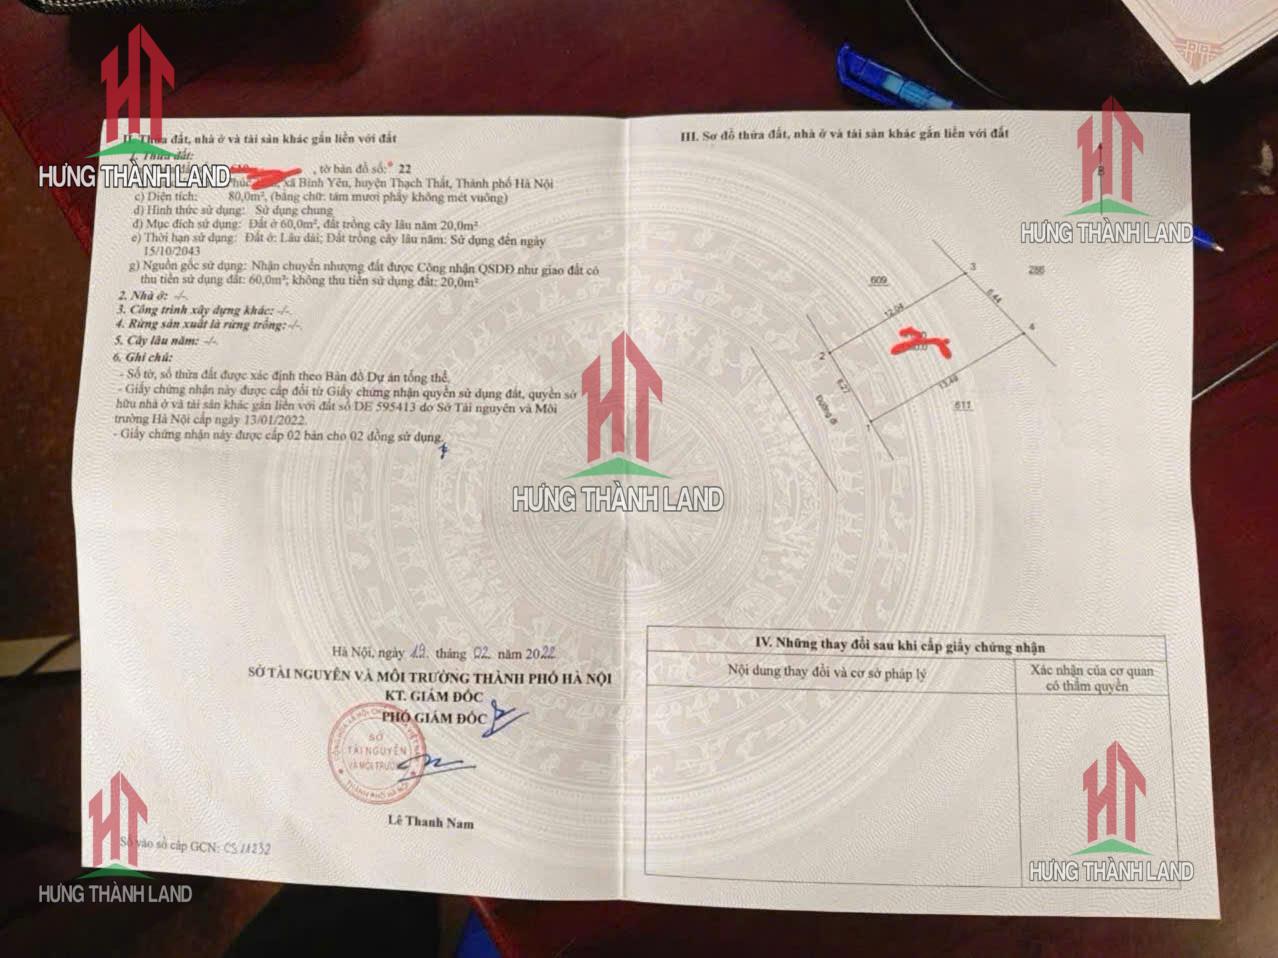 II. Thửa đất, nhà ở và tài sản khác gắn liền với đất
1. Thửa đất:
, tờ bản đồ số: 22
xã Bình Yên, huyện Thạch Thất, Thành phố Hà Nội
c) Diện tích: 80,0m², (bằng chữ: tám mươi phẩy không mét vuông)
d) Hình thức sử dụng: Sử dụng chung
đ) Mục đích sử dụng: Đất ở 60,0m², đất trồng cây lâu năm 20,0m²
e) Thời hạn sử dụng: Đất ở: Lâu dài; Đất trồng cây lâu năm: Sử dụng đến ngày
15/10/2043
g) Nguồn gốc sử dụng: Nhận chuyển nhượng đất được Công nhận QSDĐ như giao đất có
thu tiền sử dụng đất: 60,0m²; không thu tiền sử dụng đất: 20,0m²
2. Nhà ở: -/-.
3. Công trình xây dựng khác: -/-.
4. Rừng sản xuất là rừng trồng: -/-.
5. Cây lâu năm: -/-.
6. Ghi chú:
- Số tờ, số thửa đất được xác định theo Bản đồ Dự án tổng thể.
- Giấy chứng nhận này được cấp đổi từ Giấy chứng nhận quyền sử dụng đất, quyền sở
hữu nhà ở và tài sản khác gắn liền với đất số DE 595413 do Sở Tài nguyên và Môi
trường Hà Nội cấp ngày 13/01/2022.
- Giấy chứng nhận này được cấp 02 bản cho 02 đồng sử dụng.
Hà Nội, ngày 19. tháng 02. năm 2022
SỞ TÀI NGUYÊN VÀ MÔI TRƯỜNG THÀNH PHỐ HÀ NỘI
KT. GIÁM ĐỐC
PHÓ GIÁM ĐỐC
SỞ
TÀI NGUYÊN
VÀ MÔI TRƯỜNG
THÀNH PHỐ HÀ NỘI
Lê Thanh Nam
Số vào sổ cấp GCN: CS 11232
III. Sơ đồ thửa đất, nhà ở và tài sản khác gắn liền với đất
B
3
286
609
6.44
12.04
4
2
13.48
6.27
611
Đường đi
1
IV. Những thay đổi sau khi cấp giấy chứng nhận
Nội dung thay đổi và cơ sở pháp lý
Xác nhận của cơ quan
có thẩm quyền
HƯNG THÀNH LAND
HƯNG THÀNH LAND
HƯNG THÀNH LAND
HƯNG THÀNH LAND
HƯNG THÀNH LAND